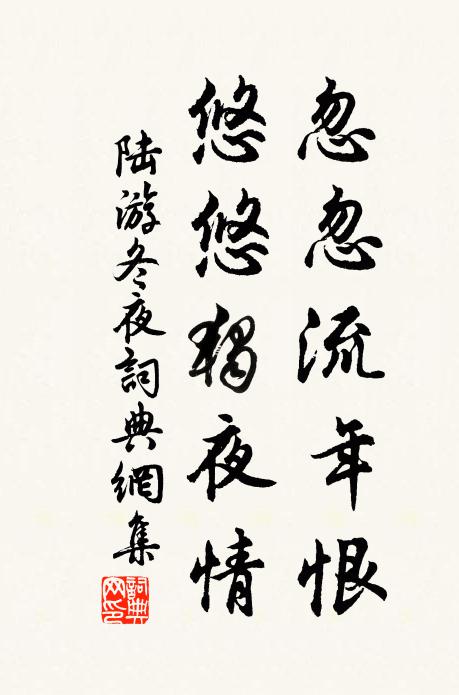 忽忽流年恨
悠悠獨夜情
陆游冬夜詞典網集
詞典
网印